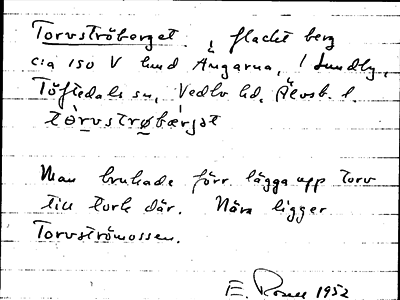 Torvströberget, flackt berg
c:a 150 V lund Ängarna, i Lundby,
Töftedals sn, Vedbo hd, Älvsb. l.
tòrvstrøbærjət
Man brukade förr lägga upp torv
till tork där. Nära ligger
Torvströmossen.
E. 1952